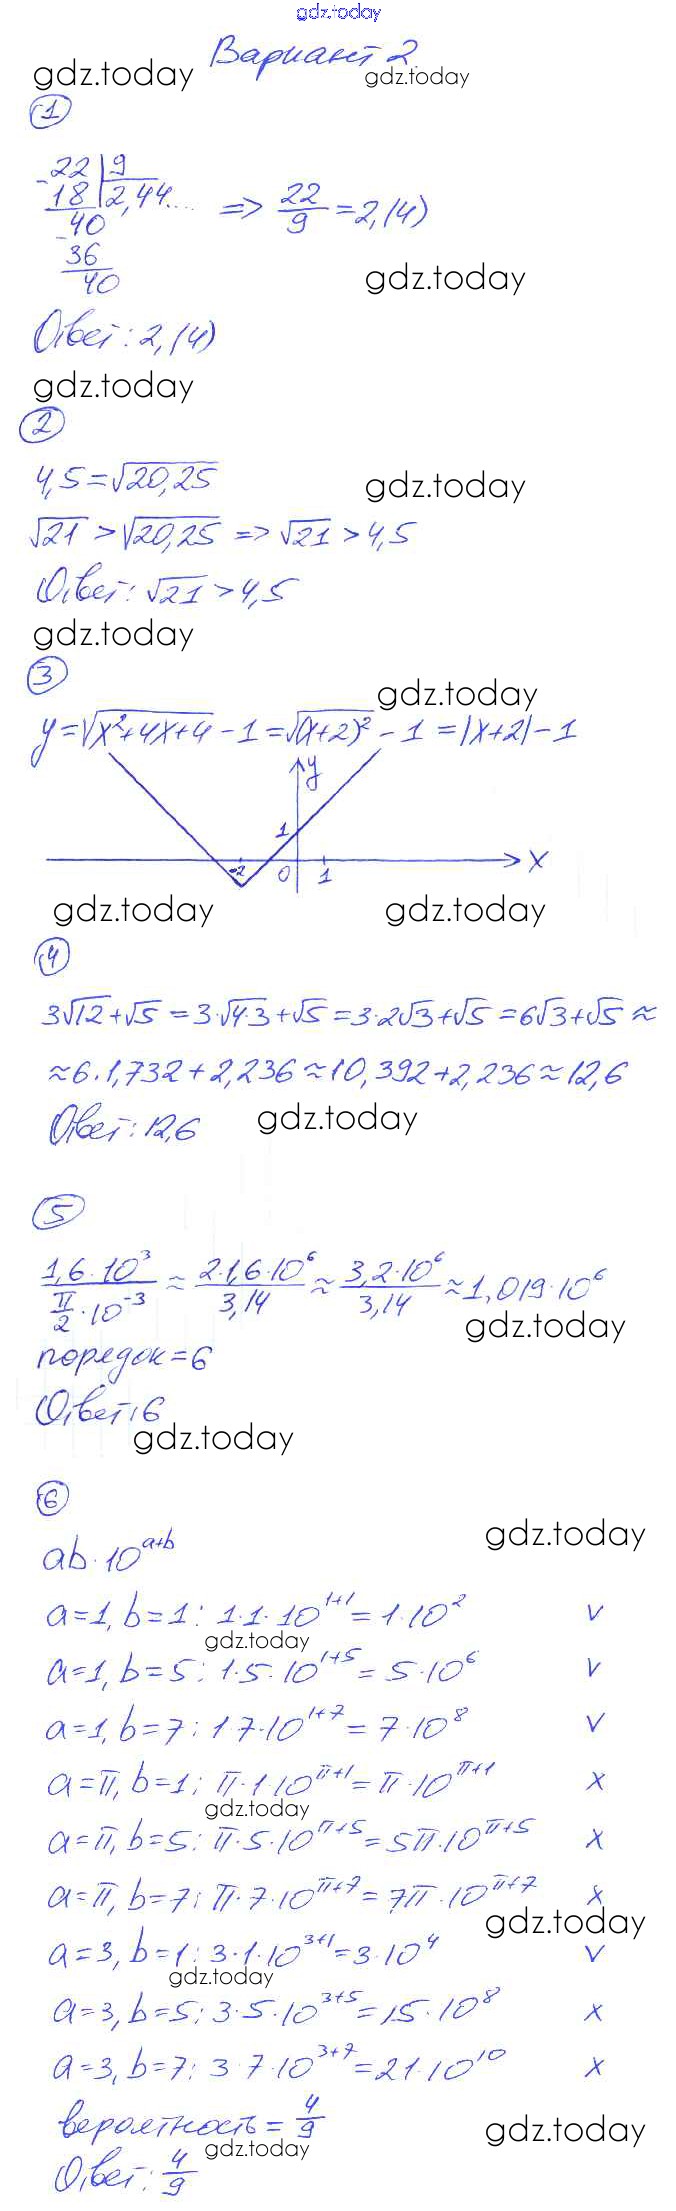 gdz.today
Вариант 2
gdz.today gdz.today
1
22 | 9
- 18 2,44... => 22/9 = 2,(4)
40
- 36
40
gdz.today
Ответ: 2,(4)
gdz.today
2
4,5 = √20,25
gdz.today
√21 > √20,25 => √21 > 4,5
Ответ: √21 > 4,5
gdz.today
3
gdz.today
y = √x²+4x+4 - 1 = √(x+2)² - 1 = |x+2| - 1
y
1
-2 0 1 x
gdz.today gdz.today
4
3√12 + √5 = 3·√4·3 + √5 = 3·2√3 + √5 = 6√3 + √5 ≈
≈ 6·1,732 + 2,236 ≈ 10,392 + 2,236 ≈ 12,6
Ответ: 12,6
gdz.today
5
1,6·10³ / (π/2 · 10⁻³) ≈ 2·1,6·10⁶ / 3,14 ≈ 3,2·10⁶ / 3,14 ≈ 1,019·10⁶
gdz.today
порядок = 6
Ответ: 6
gdz.today
6
gdz.today
ab·10^(a+b)
a=1, b=1: 1·1·10^(1+1) = 1·10² v
gdz.today
a=1, b=5: 1·5·10^(1+5) = 5·10⁶ v
a=1, b=7: 1·7·10^(1+7) = 7·10⁸ v
a=π, b=1: π·1·10^(π+1) = π·10^(π+1) x
gdz.today
a=π, b=5: π·5·10^(π+5) = 5π·10^(π+5) x
a=π, b=7: π·7·10^(π+7) = 7π·10^(π+7) x
gdz.today
a=3, b=1: 3·1·10^(3+1) = 3·10⁴ v
gdz.today
a=3, b=5: 3·5·10^(3+5) = 15·10⁸ x
a=3, b=7: 3·7·10^(3+7) = 21·10¹⁰ x
вероятность = 4/9
gdz.today
gdz.today
Ответ: 4/9